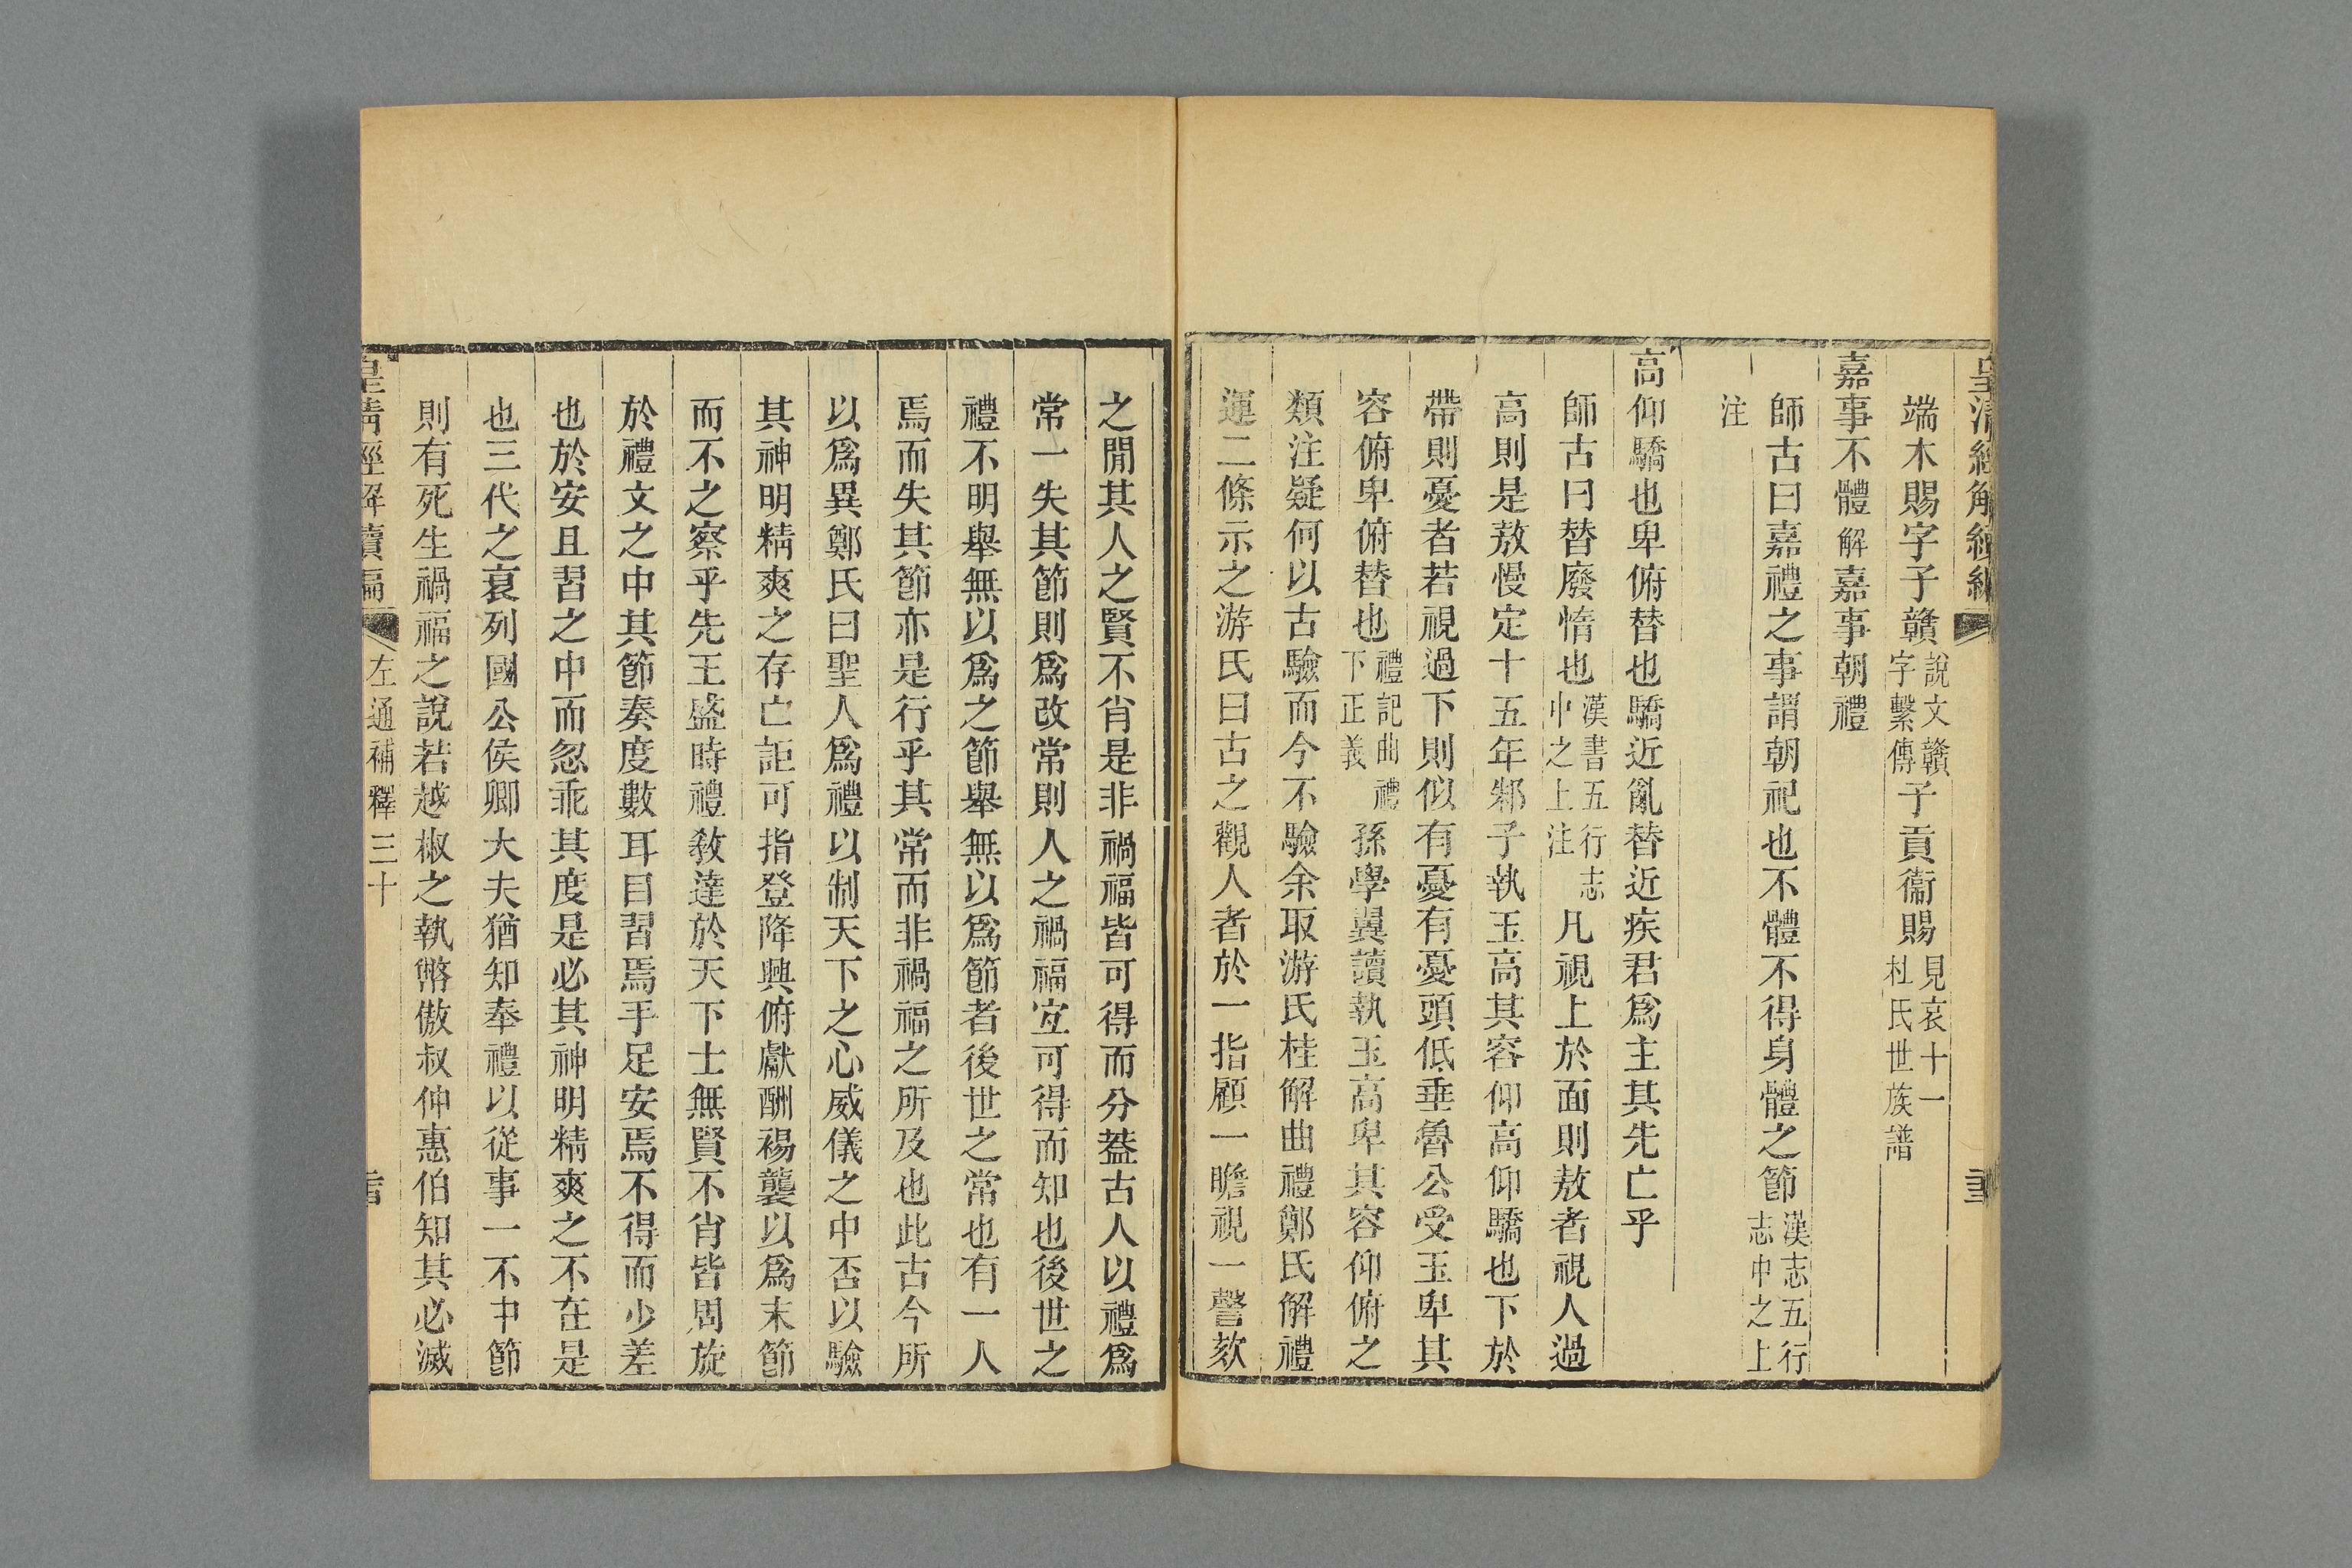 皇清經解續編
端木賜字子贛說文贛字繫傳子貢衞賜見哀十一杜氏世族譜
嘉事不體解嘉事朝禮
師古曰嘉禮之事謂朝祀也不體不得身體之節漢志五行志中之上
注
高仰驕也卑俯替也驕近亂替近疾君爲主其先亡乎
師古曰替廢惰也漢書五行志中之上注凡視上於面則敖者視人過
高則是敖慢定十五年邾子執玉高其容仰高仰驕也下於
帶則憂者若視過下則似有憂有憂頭低垂魯公受玉卑其
容俯卑俯替也禮記曲禮下正義孫學翼讀執玉高卑其容仰俯之
類注疑何以古驗而今不驗余取游氏桂解曲禮鄭氏解禮
運二條示之游氏曰古之觀人者於一指顧一瞻視一謦欬
之閒其人之賢不肖是非禍福皆可得而分葢古人以禮爲
常一失其節則爲改常則人之禍福宐可得而知也後世之
禮不明舉無以爲之節舉無以爲節者後世之常也有一人
焉而失其節亦是行乎其常而非禍福之所及也此古今所
以爲異鄭氏曰聖人爲禮以制天下之心威儀之中否以驗
其神明精爽之存亡詎可指登降興俯獻酬裼襲以爲末節
而不之察乎先王盛時禮敎達於天下士無賢不肖皆周旋
於禮文之中其節奏度數耳目習焉手足安焉不得而少差
也於安且習之中而忽乖其度是必其神明精爽之不在是
也三代之衰列國公侯卿大夫猶知奉禮以從事一不中節
則有死生禍福之說若越椒之執幣傲叔仲惠伯知其必滅
皇清經解續編 左通補釋三十